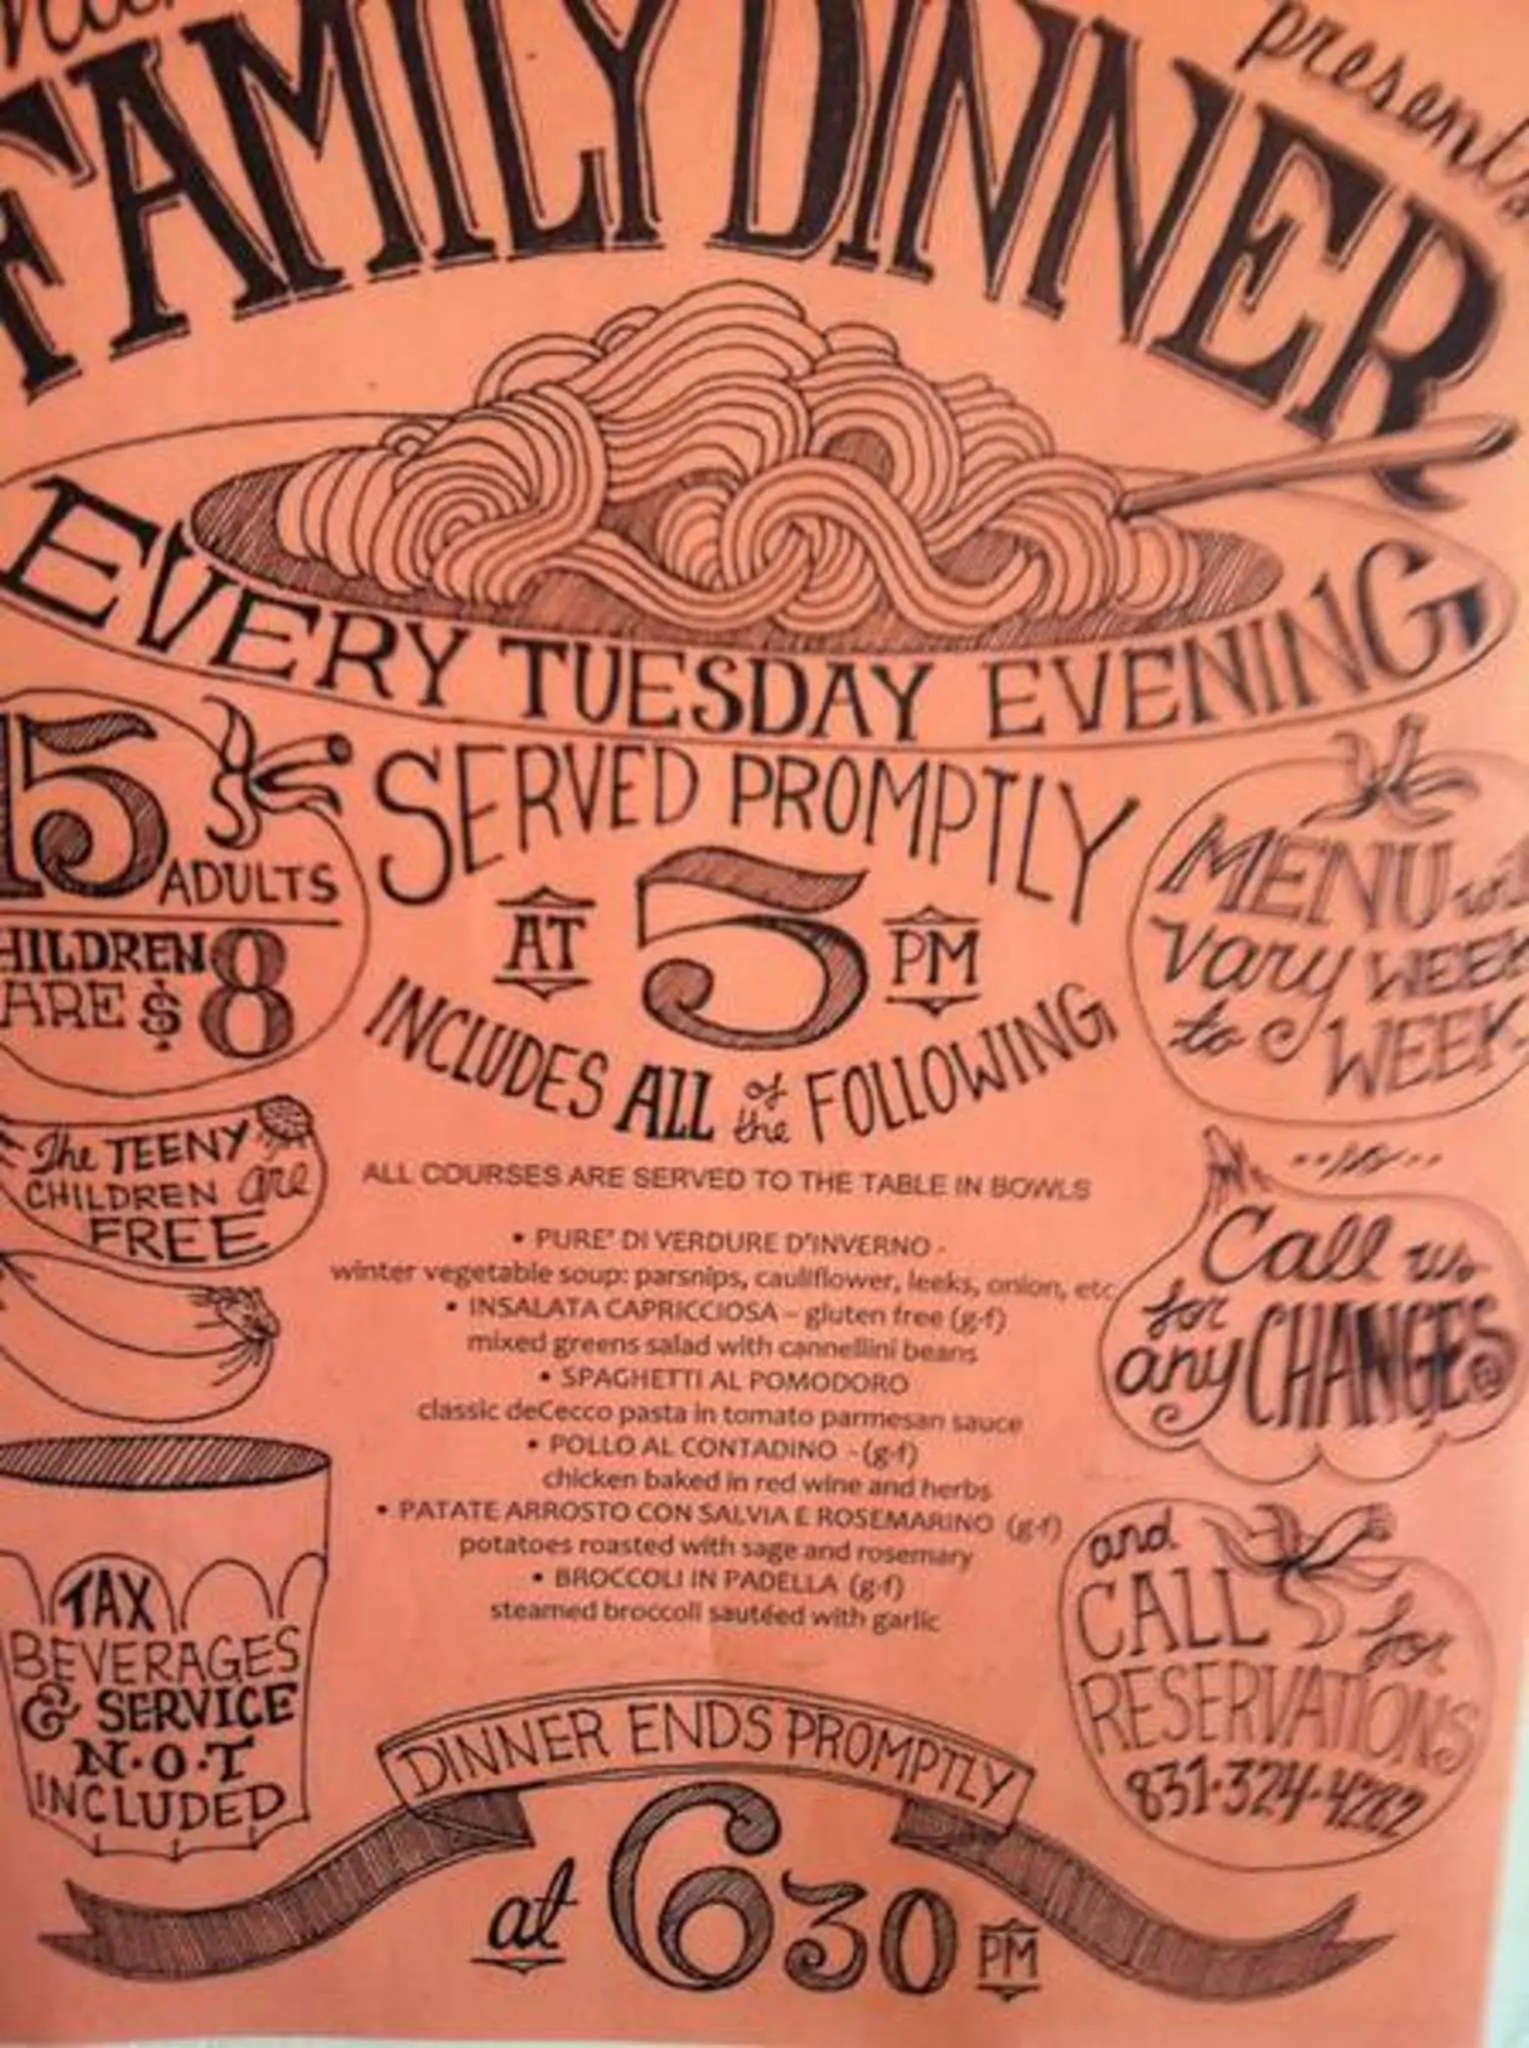 presents
FAMILY DINNER
EVERY TUESDAY EVENING
15
ADULTS
CHILDREN
ARE $ 8
The TEENY
CHILDREN are
FREE
TAX
BEVERAGES
& SERVICE
N·O·T
INCLUDED
SERVED PROMPTLY
AT 5 PM
INCLUDES ALL of the FOLLOWING
ALL COURSES ARE SERVED TO THE TABLE IN BOWLS
• PURE' DI VERDURE D'INVERNO -
winter vegetable soup: parsnips, cauliflower, leeks, onion, etc
• INSALATA CAPRICCIOSA – gluten free (g-f)
mixed greens salad with cannellini beans
• SPAGHETTI AL POMODORO
classic deCecco pasta in tomato parmesan sauce
• POLLO AL CONTADINO - (g-f)
chicken baked in red wine and herbs
• PATATE ARROSTO CON SALVIA E ROSEMARINO (g-f)
potatoes roasted with sage and rosemary
• BROCCOLI IN PADELLA (g-f)
steamed broccoli sautéed with garlic
MENU will
vary WEEK
to WEEK
Call us
for
any CHANGES
and
CALL for
RESERVATIONS
831·324·4282
DINNER ENDS PROMPTLY
at 630 PM